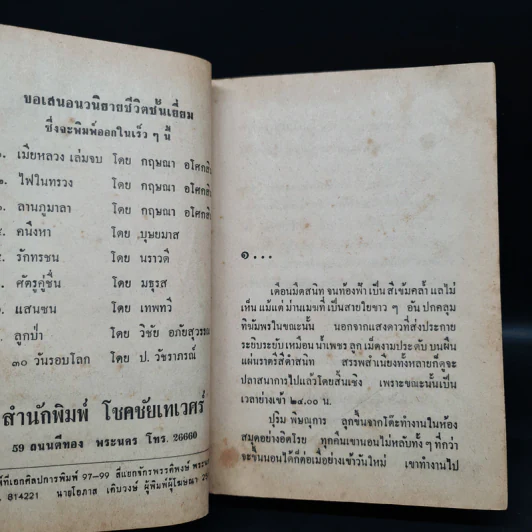 ขอเสนอนวนิยายชีวิตชั้นเยี่ยม
ซึ่งจะพิมพ์ออกในเร็ว ๆ นี้
เมียหลวง เล่มจบ โดย กฤษณา
ไฟในทรวง โดย กฤษณา
ลานภูมาลา โดย กฤษณา
คนึงหา โดย บุษยมาส
รักทรชน โดย นราวดี
ศัตรูคู่ชื่น โดย มธุรส
แสนซน โดย เทพทวี
ลูกป่า โดย วิชัย
๓๐ วันรอบโลก โดย ป. วัชราภรณ์
สำนักพิมพ์ โชคชัยเทเวศร์
59 ถนนตีทอง พระนคร โทร. 26660
97-99 สี่แยกจักรพรรดิพงษ์
814221 นายโอภาส เติบวงษ์ ผู้พิมพ์ผู้โฆษณา
๑...
เดือนมืดสนิท จนท้องฟ้าเป็นสีเข้มคล้ำ แลไม่
เห็น แม้แต่ ม่านเมฆที่ เป็นสายใยขาว ๆ อัน ปกคลุม
ทิฆัมพรในขณะนั้น นอกจากแสงดาวที่ส่งประกาย
ระยิบระยับ เหมือน น้ำเพชร ลูก เม็ดงามประดับ บนผืน
แผ่นราตรีสีดำสนิท สรรพสำเนียงทั้งหลายก็ดูจะ
ปลาสนาการไปแล้วโดยสิ้นเชิง เพราะขณะนั้นเป็น
เวลาย่างเข้า ๒๔.๐๐ น.
ปุริม พิษณุการ ลุกขึ้นจากโต๊ะทำงานในห้อง
สมุดอย่างอิดโรย ทุกคืนเขานอนไม่หลับทั้ง ๆ ที่กว่า
จะขึ้นนอนได้ก็ต่อเมื่อย่างเข้าวันใหม่ เขาทำงานไป